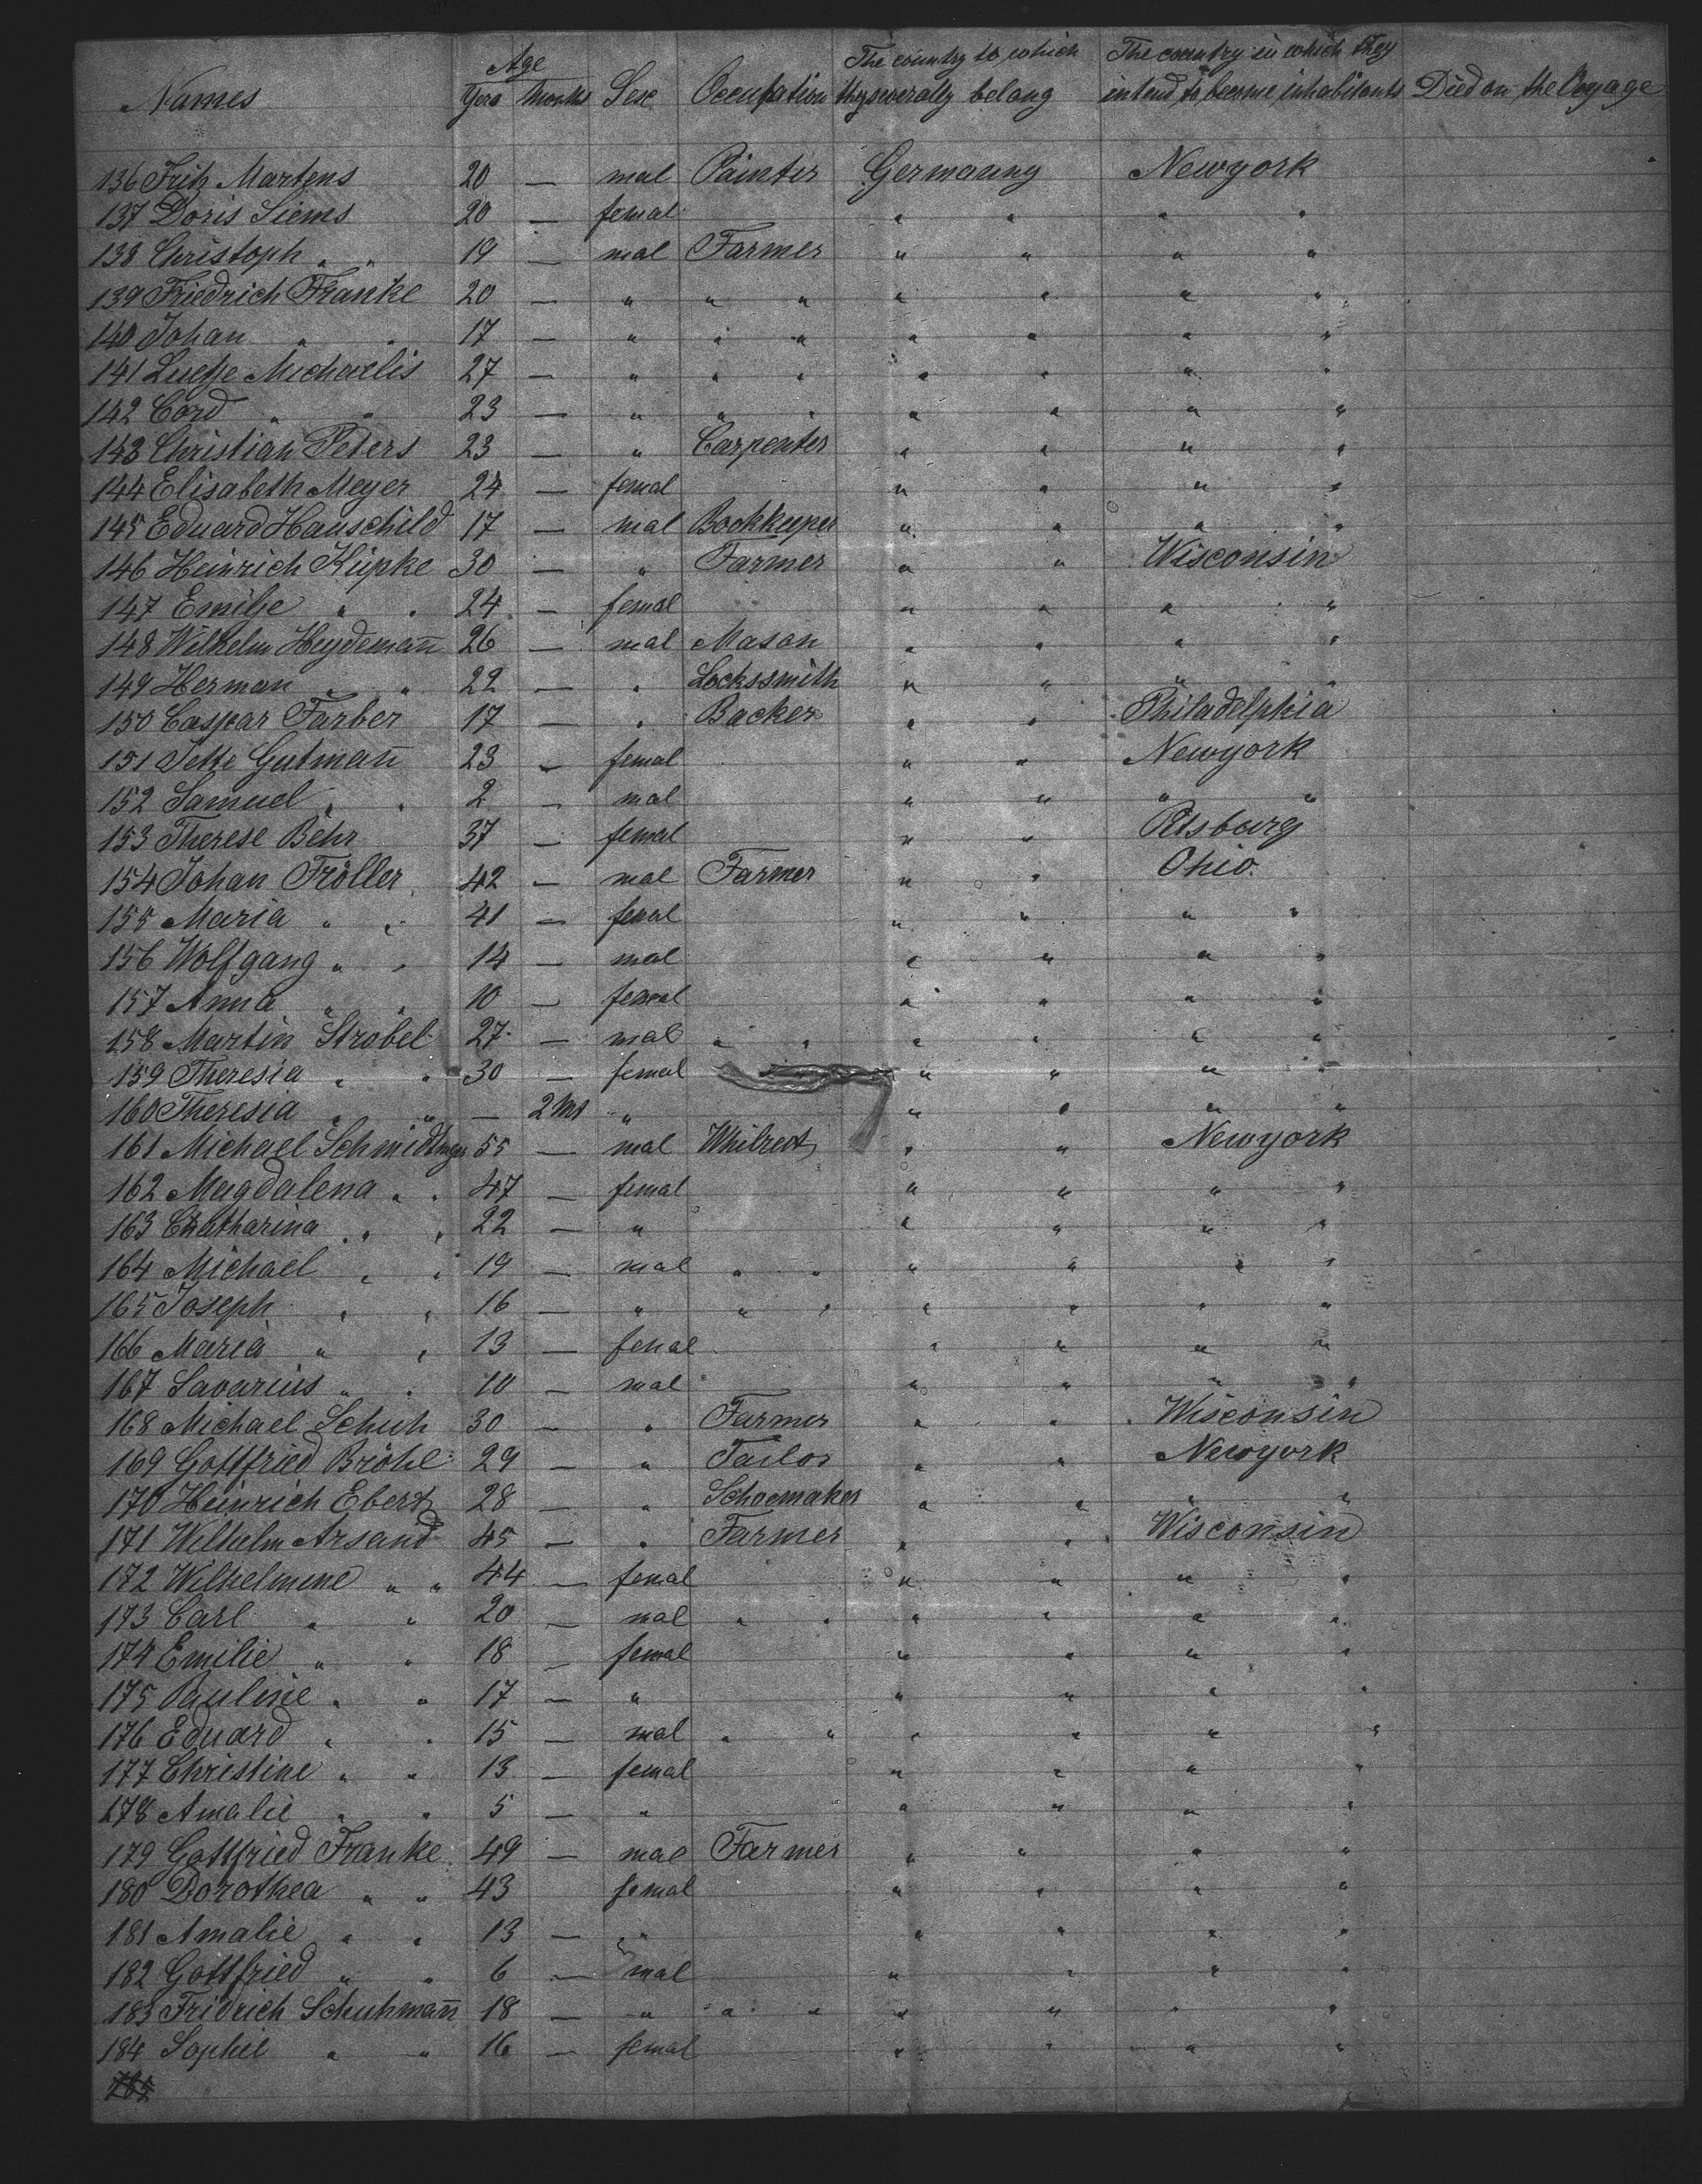 Names Age Yers Months Sex Occupation The country to which they severally belong The country in which they intend to become inhabitants Died on the Voyage
136 Fritz Martens 20 — mal Painter Germanny Newyork
137 Doris Siems 20 — femal " " " "
138 Christoph " " 19 — mal Farmer " " " "
139 Friedrich Franke 20 — " " " " " " "
140 Johan " " 17 — " " " " " " "
141 Luetje Michaelis 27 — " " " " " " "
142 Cord " " 23 — " " " " " " "
143 Christian Peters 23 — " Carpenter " " " "
144 Elisabeth Meyer 24 — femal " " " "
145 Eduard Hauschild 17 — mal Bookkeeper " " " "
146 Heinrich Küpke 30 — " Farmer " " Wisconsin
147 Emilje " " 24 — femal " " " "
148 Wilhelm Heydemañ 26 — mal Mason " " " "
149 Herman " " 22 — " Lockssmith " " " "
150 Caspar Farber 17 — " Backer " " Philadelphia
151 Jette Gutmañ 23 — femal " " Newyork
152 Samuel " " 2 — mal " " " "
153 Therese Behr 37 — femal " " Pitsburg
154 Johan Fröller 42 — mal Farmer " " Ohio.
155 Maria " " 41 — femal " " " "
156 Wolfgang " " 14 — mal " " " "
157 Anna " " 10 — femal " " " "
158 Martin Strobel 27 — mal " " " " " "
159 Theresia " " 30 — femal " " " "
160 Theresia " " — 2 Mt " " " " "
161 Michael Schmidtmeyer 55 — mal " " Newyork
162 Magdalena " " 47 — femal " " " "
163 Chatharina " " 22 — " " " " "
164 Michael " " 19 — mal " " " " " "
165 Joseph " " 16 — " " " " " " "
166 Maria " " 13 — femal " " " "
167 Savarius " " 10 — mal " " " "
168 Michael Schuh 30 — " Farmer " " Wisconsin
169 Gottfried Bröhl 29 — " Tailor " " Newyork
170 Heinrich Ebert 28 — " Schoemaker " " " "
171 Wilhelm Arsand 45 — " Farmer " " Wisconsin
172 Wilhelmine " " 44 — femal " " " "
173 Carl " " 20 — mal " " " " " "
174 Emilie " " 18 — femal " " " "
175 Pauline " " 17 — " " " " "
176 Eduard " " 15 — mal " " " " " "
177 Christine " " 13 — femal " " " "
178 Amalie " " 5 — " " " " "
179 Gottfried Franke 49 — mal Farmer " " " "
180 Dorothea " " 43 femal " " " "
181 Amalie " " 13 — " " " " "
182 Gottfried " " 6 — mal " " " "
183 Fridrich Schuhmañ 18 — " " " " " " "
184 Sophie " " 16 — femal " " " "
185